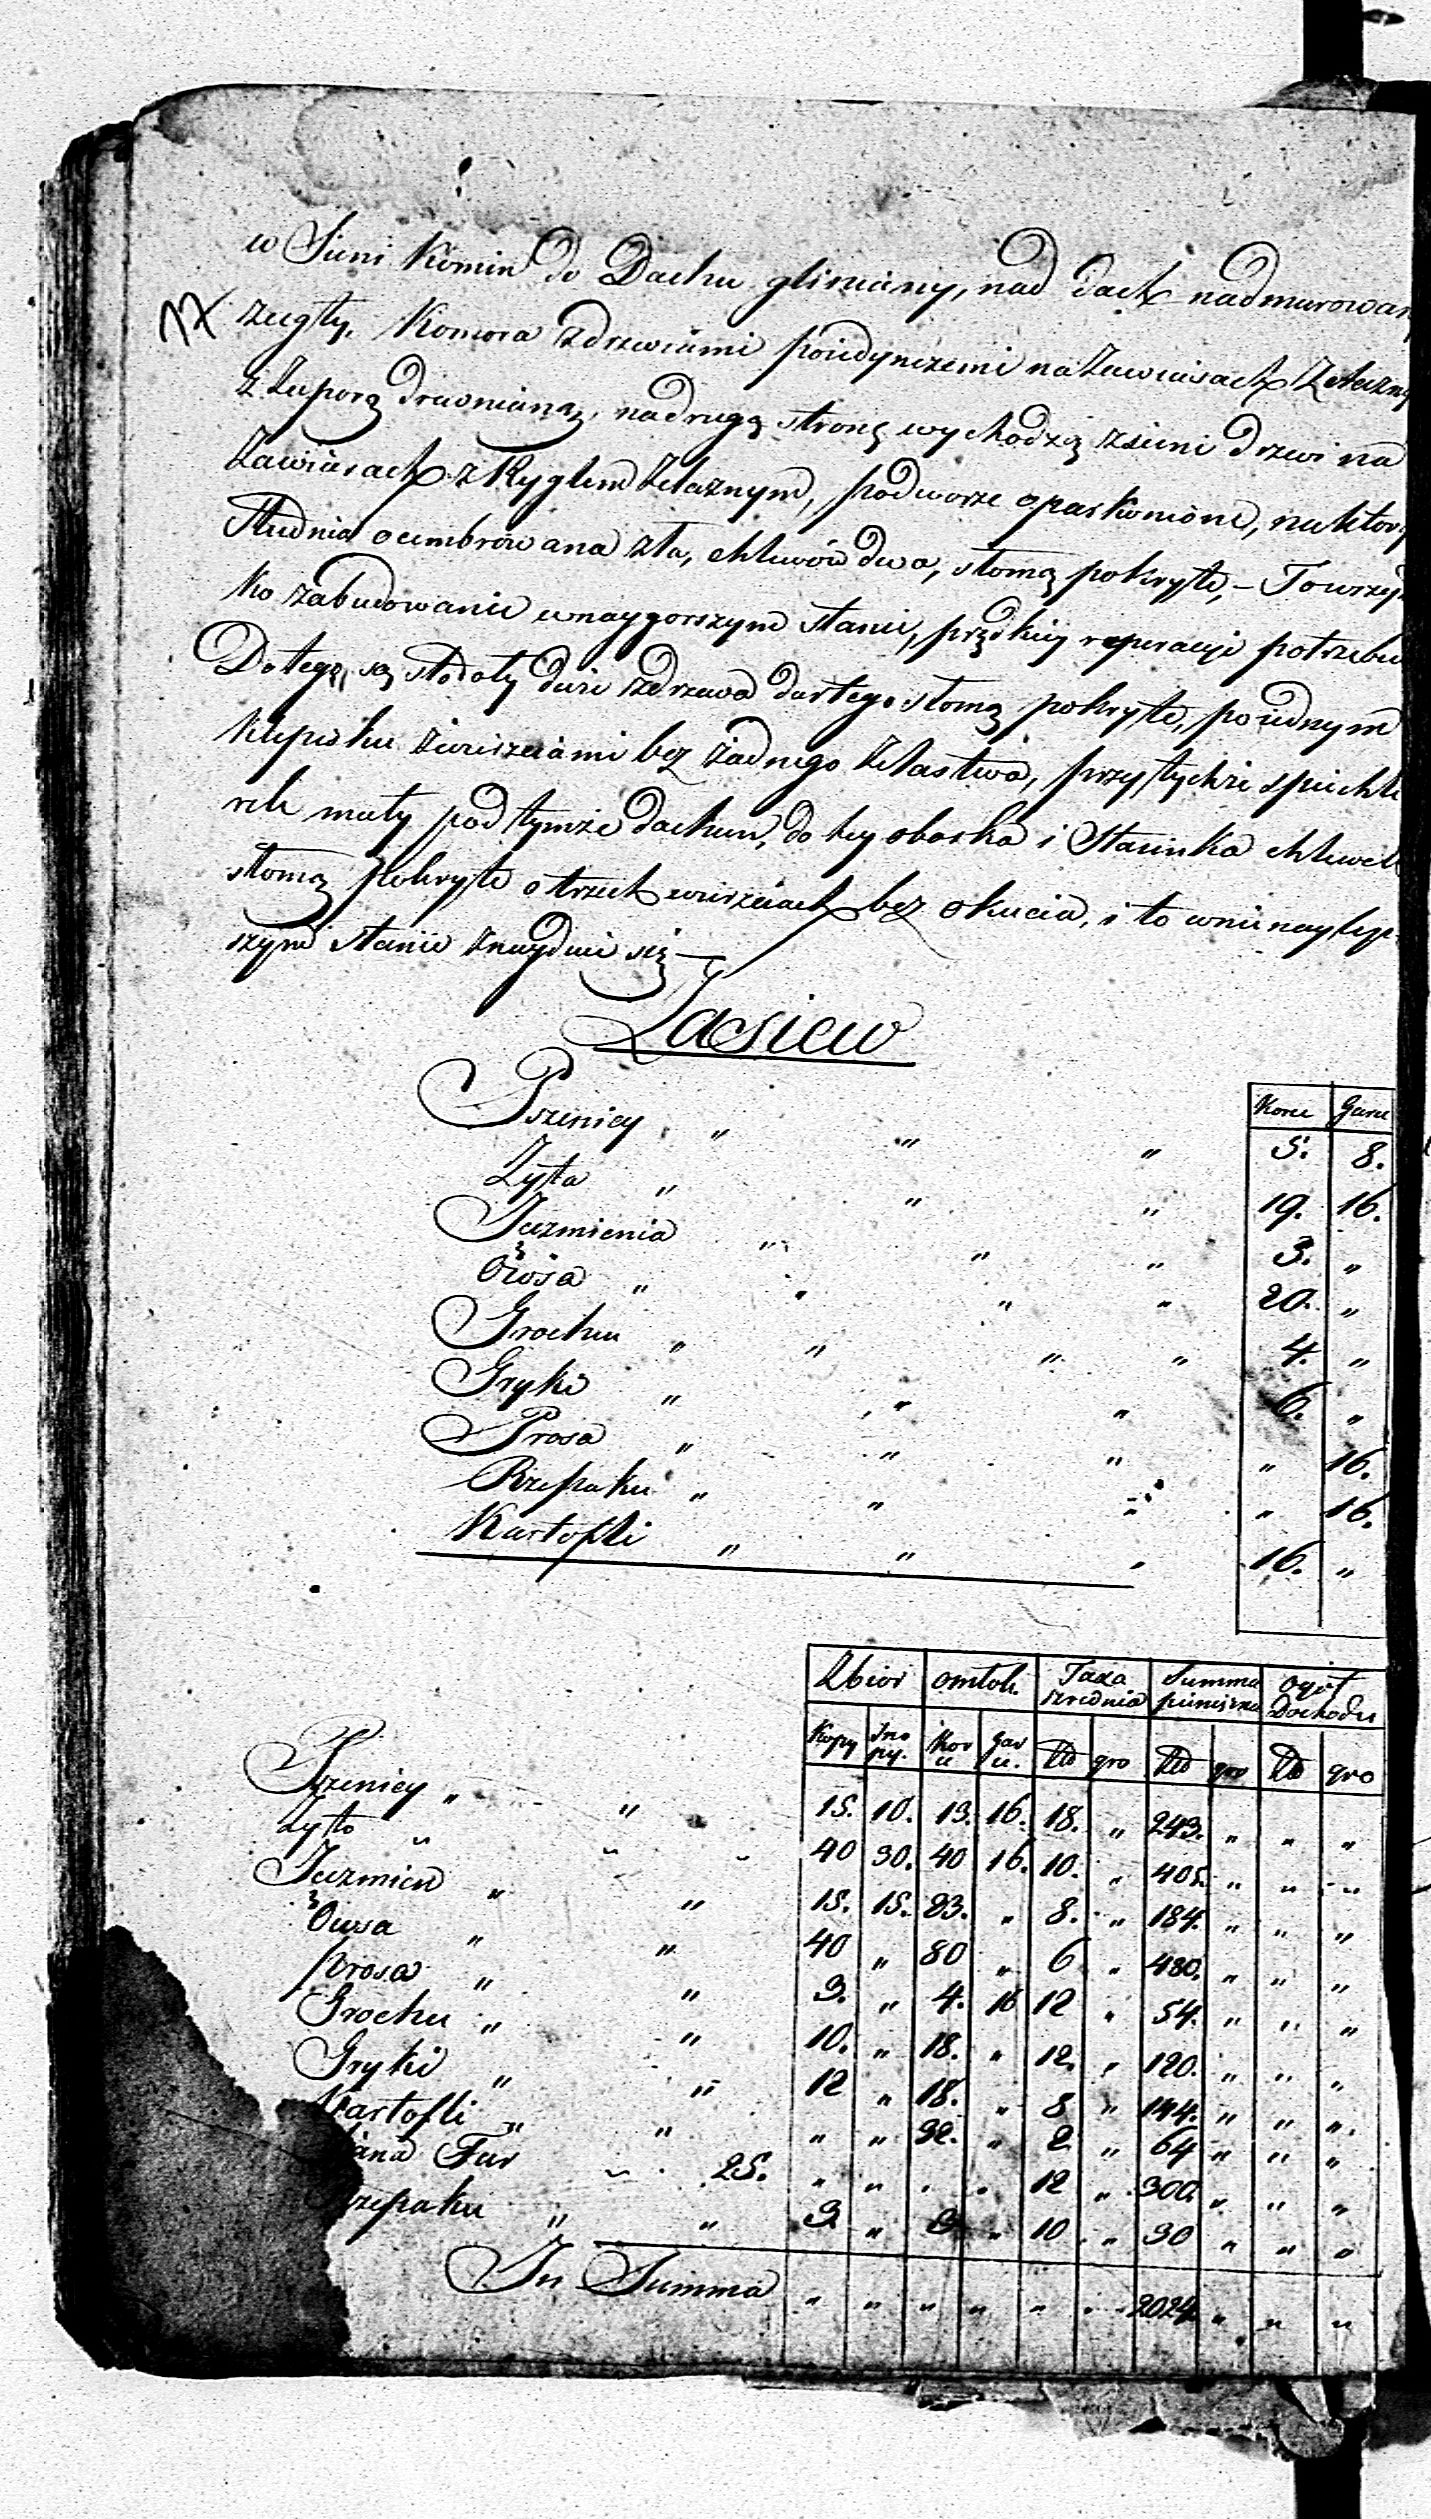 w Sieni Komin do Dachu gliniany, nad dach nadmurowan
17
zcegły, Komora zdrzwiami poiedynczemi na Zawiasach Zelazny
z Zaporą drewnianą, na drugą stronę wychodzą zsieni drzwi na
Zawiasach z Ryglem Zelaznym, podworze oparkonione, na który
Studnia ocembrowana zła, chlewów dwa, słomą pokryte, – Towszyst
ko zabudowanie wnaygorszym stanie, prędkiey reperacyi potrzebuie
Do tego są stodoły dwie zdrzewa dartego słomą pokryte, poiednym
klepisku zwierzeiami bez żadnego Zelastwa, przy tychże spichle
rek mały pod tymże dachem, do tey oborka i Stacinka chlewek
słomą pokryte o trzech wierzeiach bez okucia, i to wnie naylep
szym stanie znayduie się –
Zasiew
Korce Garce
Pszenicy „ „ „ 5. 8.
Zyta „ „ „ 19. 16.
Jęczmienia „ „ „ 3. „
Owsa „ „ „ „ 20. „
Grochu „ „ „ „ 4. „
Gryki „ „ „ 6. „
Prosa „ „ „ „ 16.
Rzepaku „ „ „ „ 16.
Kartofli „ „ „ 16. „
Zbior omłot. Taxa szrednia Summa pieniężna Ogół Dochodu
Kopy Sno py. Kor ce Gar ce. Złº gro Złº gro Złº gro
Pszenicy „ „ 15. 10. 13. 16. 18. „ 243. „ „ „
Zyto „ „ „ 40 30. 40 16. 10. „ 405. „ „ „
Jęczmień „ „ 15. 15. 23. „ 8. „ 184. „ „ „
Owsa „ „ 40 „ 80 „ 6 „ 480. „ „ „
Prosa „ „ 3. „ 4. 16 12 „ 54. „ „ „
Grochu „ „ 10. „ 18. „ 12. „ 120. „ „ „
Gryki „ „ 12 „ 18. „ 8 „ 144. „ „ „
Kartofli „ „ „ „ 32. „ 2 „ 64 „ „ „
Siana Fur „ 25. „ „ „ „ 12 „ 300. „ „ „
Rzepaku „ „ 3. „ 3 „ 10 „ 30 „ „ „
In Summa „ „ „ „ „ „ 2024 „ „ „